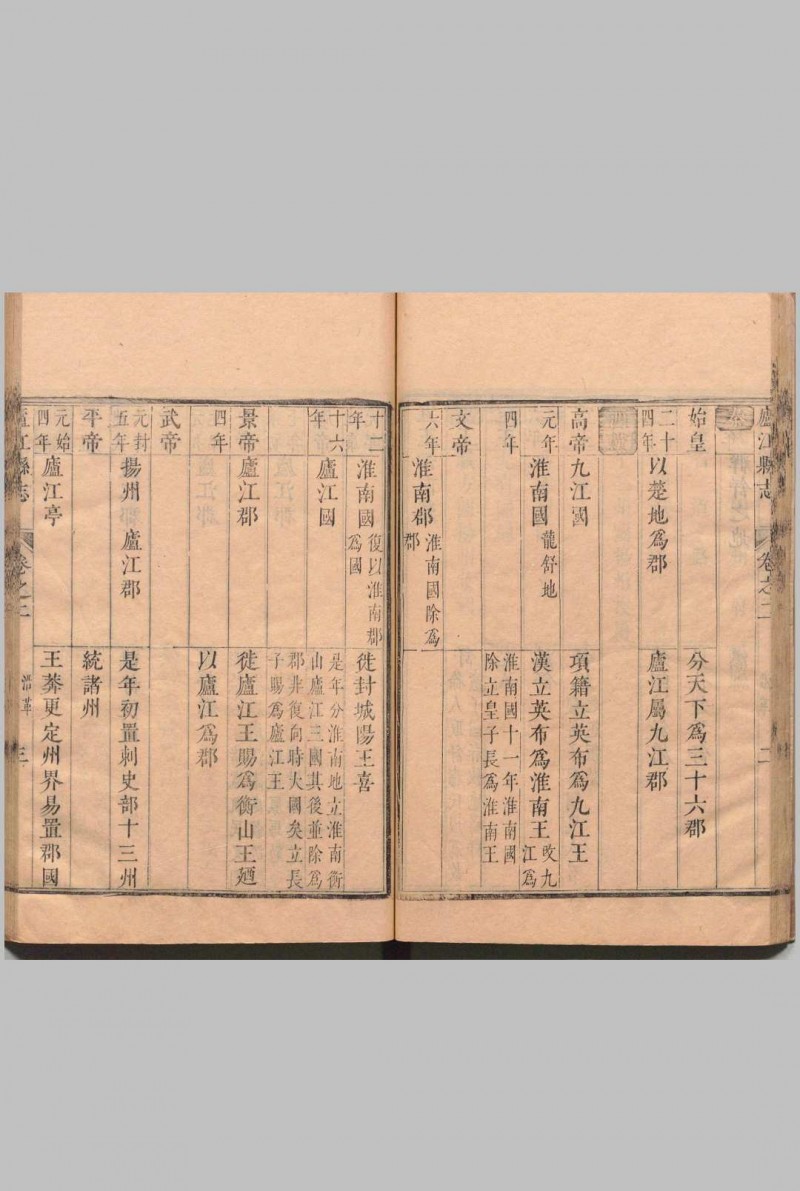 廬江縣志 卷之二 二
秦
始皇
二十四年 以楚地爲郡 分天下爲三十六郡
廬江屬九江郡
西漢
高帝 九江國 項籍立英布爲九江王
元年 淮南國 龍舒地 漢立英布爲淮南王 改九江爲
四年 淮南國十一年淮南國除立皇子長爲淮南王
文帝
六年 淮南郡 淮南國除爲郡
十二年 淮南國 復以淮南郡爲國 徙封城陽王喜
十六年 廬江國 是年分淮南地立淮南衡山廬江三國其後並除爲郡非復向時大國矣立長子賜爲廬江王
景帝 廬江郡 徙廬江王賜爲衡山王廼
四年 以廬江爲郡
武帝
元封五年 揚州部 廬江郡 是年初置刺史部十三州
平帝 統諸州
元始四年 廬江亭 王莽更定州界易置郡國
廬江縣志 卷之二 沿革 三